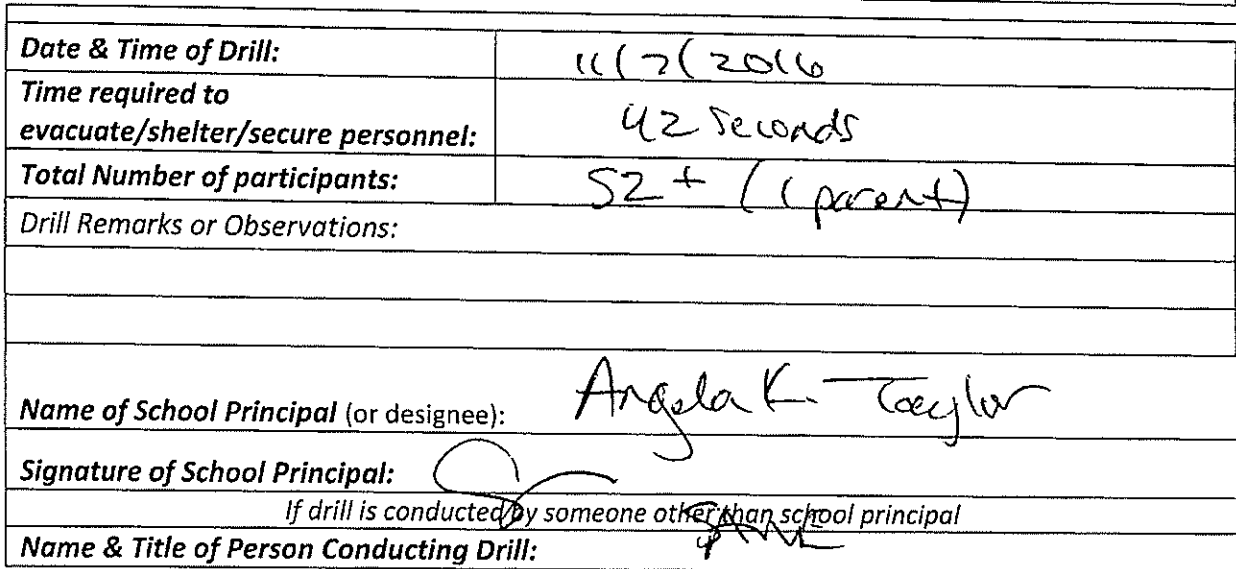 Date & Time of Drill: 11/7/2016
Time required to
evacuate/shelter/secure personnel: 42 Seconds
Total Number of participants: 52 + (1 parent)
Drill Remarks or Observations:
Name of School Principal (or designee): Angela K. Taylor
Signature of School Principal:
If drill is conducted by someone other than school principal
Name & Title of Person Conducting Drill: SAME